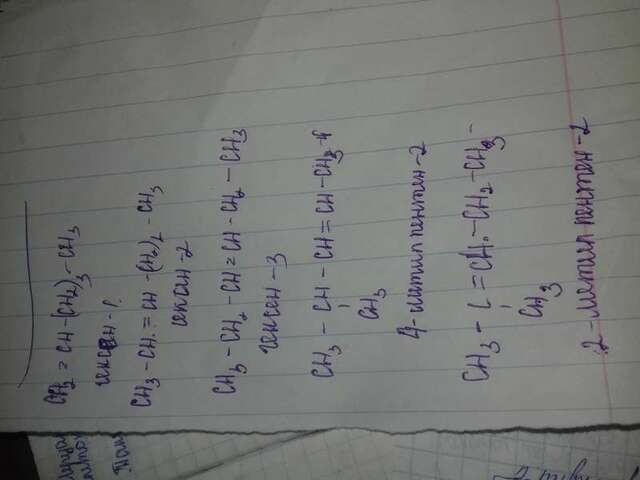 CH₂ = CH - (CH₂)₃ - CH₃
гексен - 1.
CH₃ - CH. = CH - (CH₂)₂ - CH₃
гексен - 2
CH₃ - CH₂ - CH = CH - CH₂ - CH₃
гексен - 3
CH₃ - CH - CH = CH - CH₃
CH₃
4 - метил пентен - 2
CH₃ - C = CH. - CH₂ - CH₃ -
CH₃
2 - метил пентен - 2